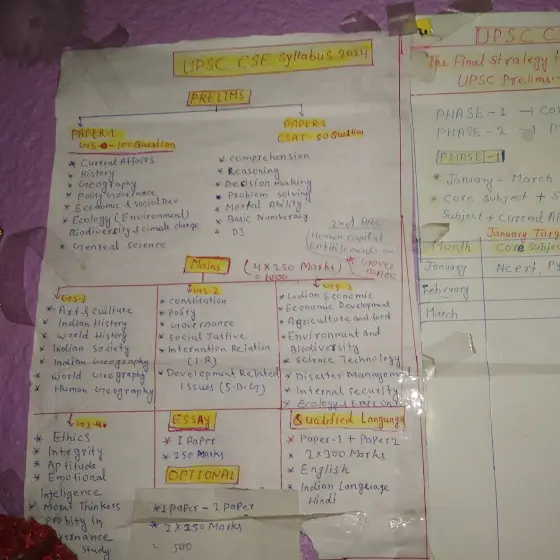 UPSC CSE Syllabus 2024
PRELIMS
PAPER-1
GS - 100 Question
* Current Affairs
* History
* Geography
* Polity Governance
* Economic & Social Dev
* Ecology (Environment)
Biodiversity & climate change
* General Science
PAPER-2
CSAT - 80 Question
* comprehension
* Reasoning
* Decision making
* Problem solving
* Mental Ability
* Basic Numbering
* DI
2nd ARC
Human capital
Mains (4 x 250 Marks)
= 1000
GS-1
* Art & Culture
* Indian History
* World History
* Indian Society
* Indian Geography
* World Geography
* Human Geography
GS-2
* Constitution
* Polity
* Governance
* Social Justice
* Internation Relation
(I.R)
* Development Related
Issues (S.D.G)
GS-3
* Indian Economic
* Economic Development
* Agriculture and food
* Environment and
Biodiversity
* Science Technology
* Disaster Management
* Internal security
* Ecology &
GS-4
* Ethics
* Integrity
* Aptitude
* Emotional
Intelegence
* Moral Thinkers
* Probity in
Governance
Study
ESSAY
* 1 Paper
* 250 Marks
OPTIONAL
* 1 Paper - 2 Paper
* 2 x 250 Marks
= 500
Qualified Language
* Paper-1 + Paper 2
* 2 x 300 Marks
* English
* Indian Language
Hindi
UPSC C
The Final Strategy
UPSC Prelims
PHASE - 1 → Co
PHASE - 2
PHASE-1
* January - March
* Core Subject + S
Subject + Current Af
January Targ
Month Core Subjec
January Ncert, P
February
March